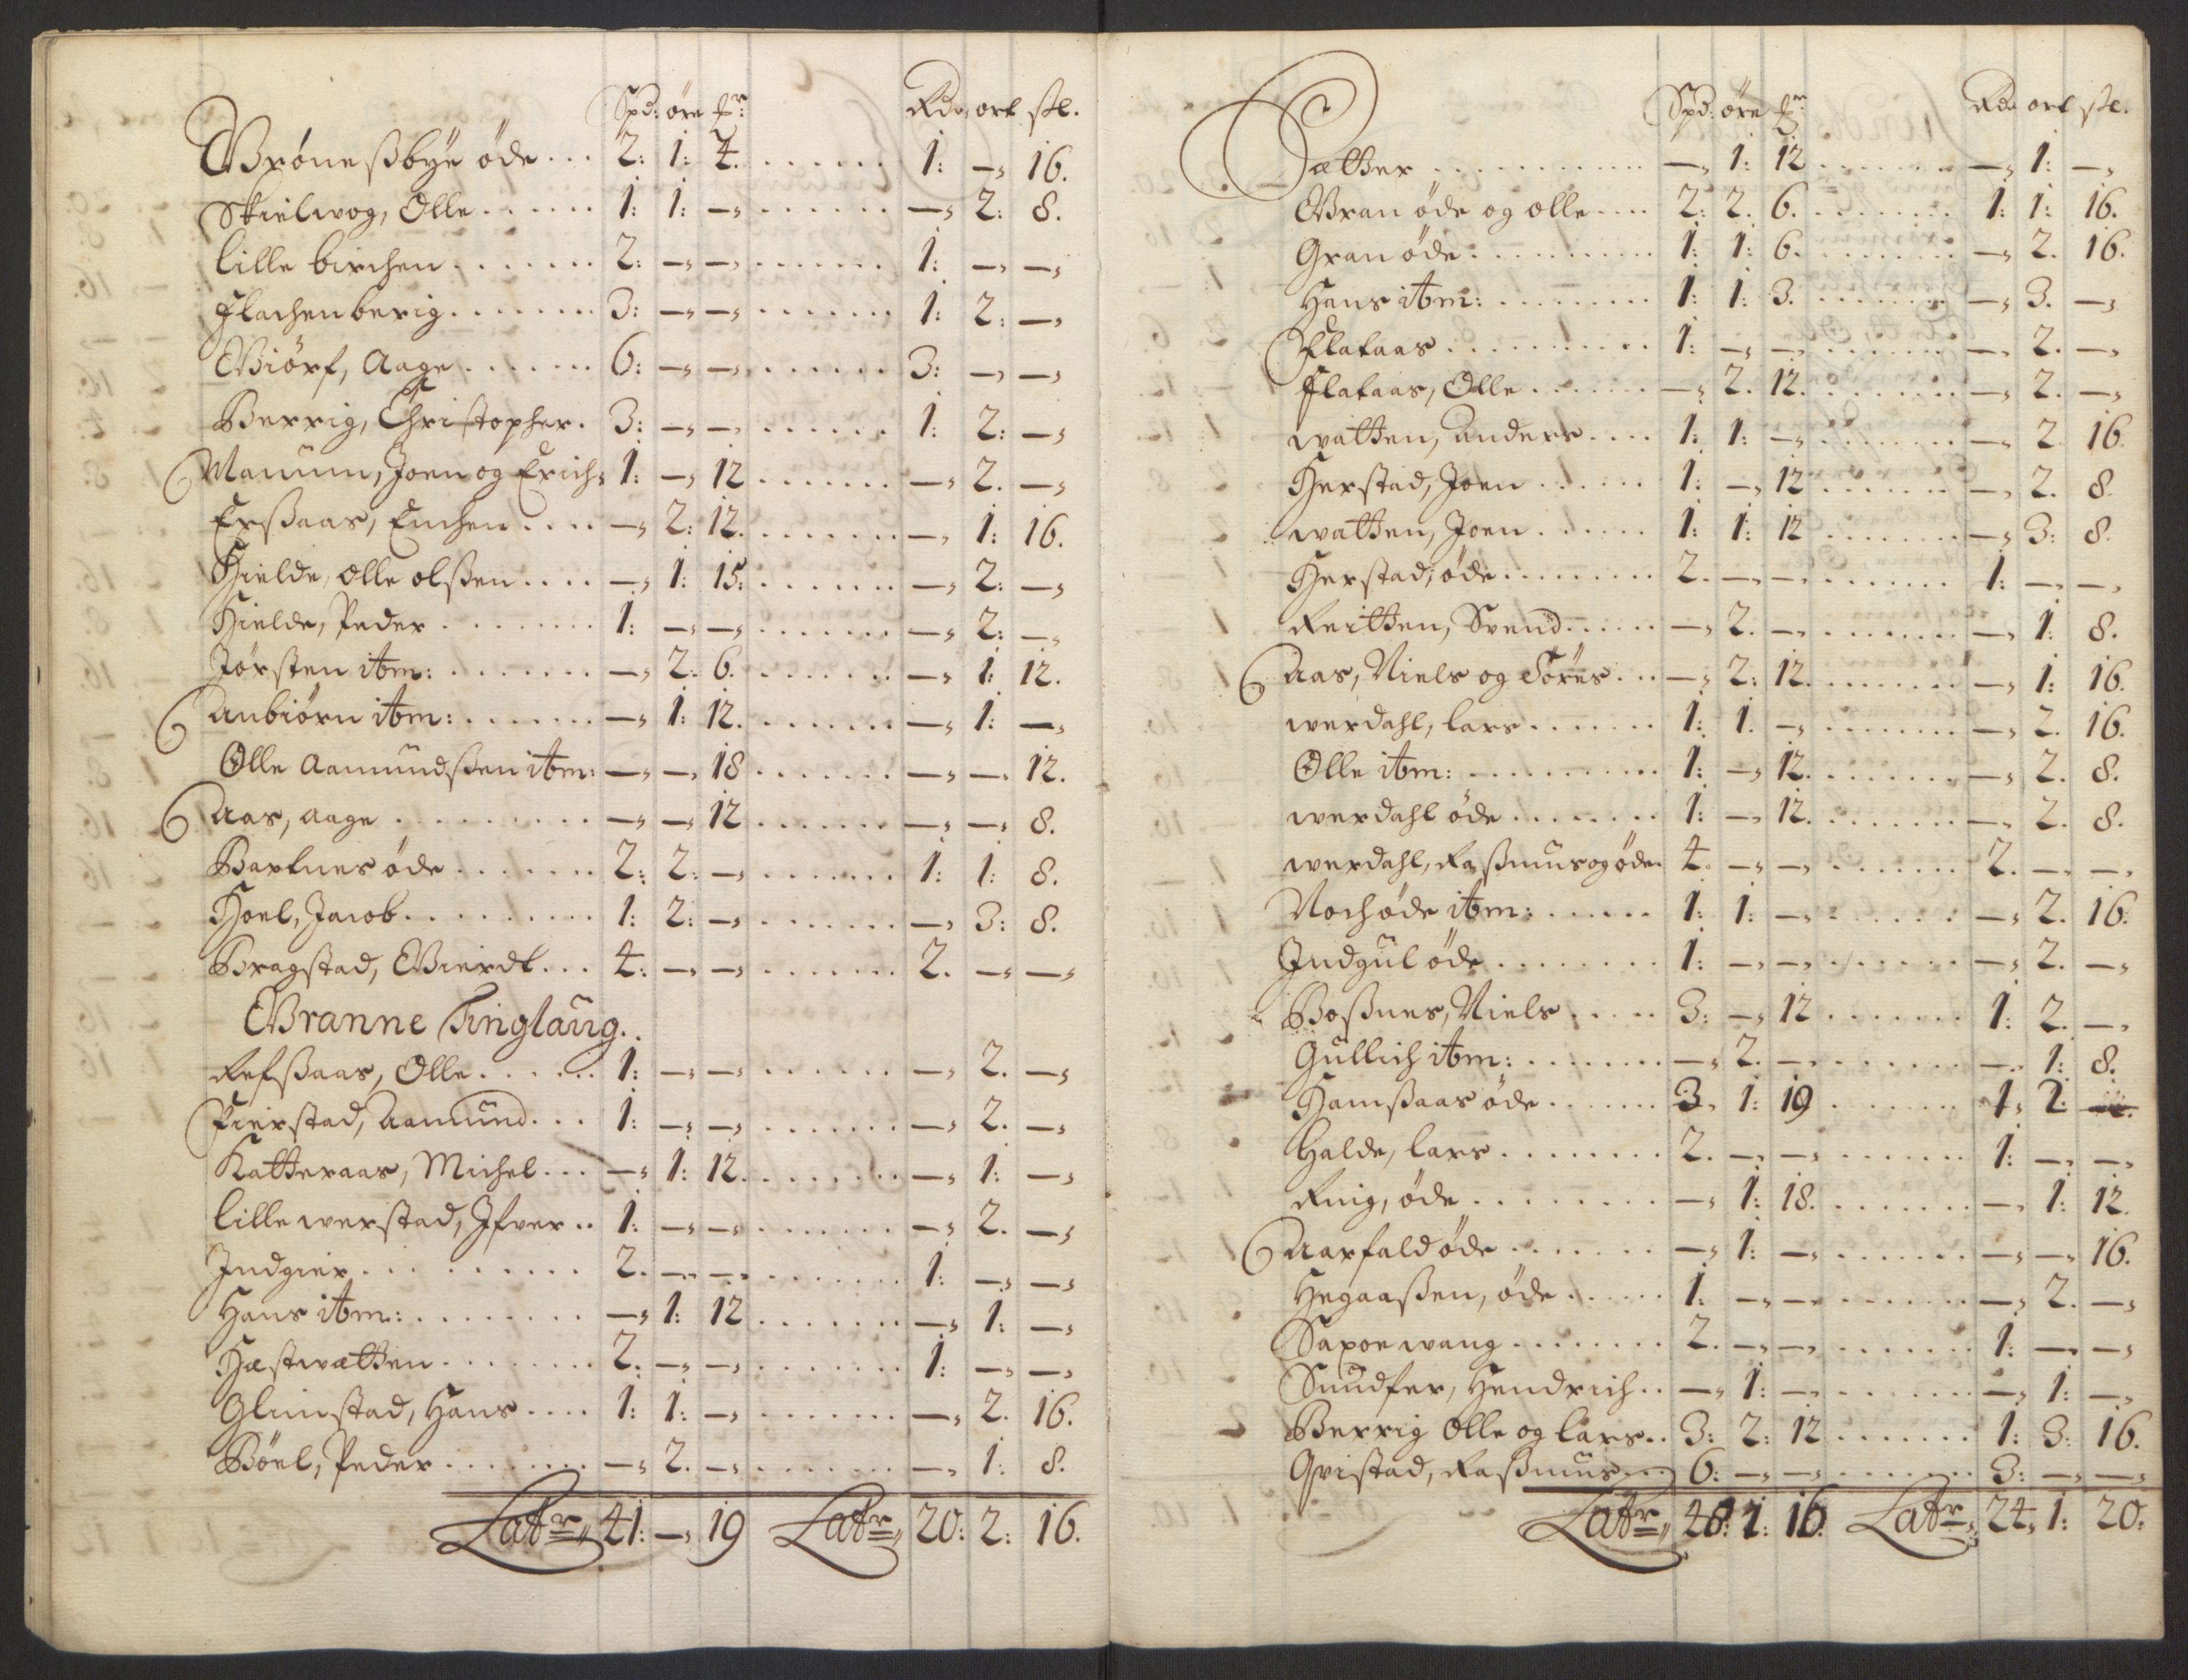 Spd: øre pr: Rdr, ort sk.
Grønesßbye øde ... 2: 1: 4. ....... 1: — 16.
Skielwog, Olle ...... 1: 1: — ....... — 2: 8.
lille birchen ....... 2: — — ....... 1: — —
Flachenberig ....... 3: — — ....... 1: 2: —
Giørf, Aage ...... 6: — — ....... 3: — —
Berrig, Christopher. 3: — — ....... 1: 2: —
Manum, Joen og Erich 1: — 12 ....... — 2. —
Erßaas, Enchen .... — 2: 12. ....... — 1: 16.
Hielde, olle olßen .... — 1: 15: ....... — 2: —
Hielde, Peder ....... 1: — — ....... — 2: —
Jørsten itm: ....... — 2: 6. ....... — 1: 12.
Anbiørn itm: ...... — 1: 12. ....... — 1: —
Olle Aamundßen itm: — — 18 ....... — — 12.
Aas, aage ......... — — 12 ....... — — 8.
Bartnes øde ...... 2: 2: — ....... 1: 1: 8.
Hoel, Jacob ......... 1: 2: — ....... — 3: 8.
Bragstad, Gierdt ... 4: — — ....... 2. — —
Granne Tinglaug.
Refßaas, Olle ...... 1: — — ....... — 2. —
Pierstad, Aamund ... 1: — — ....... — 2. —
Katteraas, Michel ... — 1: 12. ....... — 1: —
lille werstad, Ifver .. 1: — — ....... — 2. —
Indgier .......... 2. — — ....... 1: — —
Hans itm: ........ — 1: 12 ....... — 1: —
Hæstwatten ....... 2. — — ....... 1: — —
Glimstad, Hans .... 1: 1: — ....... — 2. 16.
Bøel, Peder ....... — 2. — ....... — 1: 8.
Latr 41: — 19 Latr 20: 2: 16.
Spd: øre pr: Rdr ort sk.
Sætter ........... — 1: 12 ....... — 1: —
Gran øde og olle .... 2: 2. 6. ....... 1: 1: 16.
Gran øde: ......... 1: 1: 6. ....... — 2. 16.
Hans itm: ........ 1: 1: 3. ....... — 3. —
Flataas .......... 1: — — ....... — 2. —
Flataas, Olle ...... — 2. 12. ....... — 2. —
watten, anders .... 1: 1: — ....... — 2 16.
Herstad, Joen ...... 1: — 12 ....... — 2. 8.
watten, Joen ...... 1: 1: 12 ....... — 3: 8.
Herstad, øde ........ 2. — — ....... 1: — —
Reitten, Svend ..... — 2. — ....... — 1: 8.
Aas, Niels og Søren ... — 2: 12. ....... — 1: 16.
werdahl, lars ...... 1: 1. — ....... — 2. 16.
Olle itm: .......... 1: — 12. ....... — 2. 8.
werdahl øde ........ 1: — 12. ....... — 2. 8.
werdahl, Raßmus og øde. 4. — — ....... 2. — —
Noch øde itm: ...... 1: 1: — ....... — 2. 16.
Indgul øde ........ 1: — — ....... — 2. —
Boßnes, Niels ..... 3: — 12 ....... 1: 2. —
Gullich itm: ....... — 2. — ....... — 1: 8.
Hamßaas øde ....... 3. 1: 19 ....... 1: 2.
Halde, lars ........ 2. — — ....... 1: — —
Rnig, øde ......... — 1: 18. ....... — 1: 12.
Aarfald øde ....... — 1: — ....... — — 16.
Hegaaßen, øde ...... 1. — — ....... — 2. —
Saxoewang ........ 2. — — ....... 1: — —
Sundfer, Hendrich .. — 1: — ....... — 1: —
Berrig Olle og lars .. 3: 2: 12 ....... 1: 3: 16.
Qvistad, Raßmus ... 6: — — ....... 3: — —
Latr 48: 1: 16. Latr 24, 1: 20: